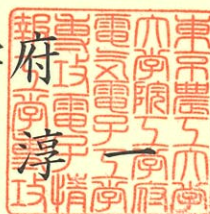 府
淳一
東京農工大学
大学院工学府
電気電子工学
専攻電子情
報工学専攻